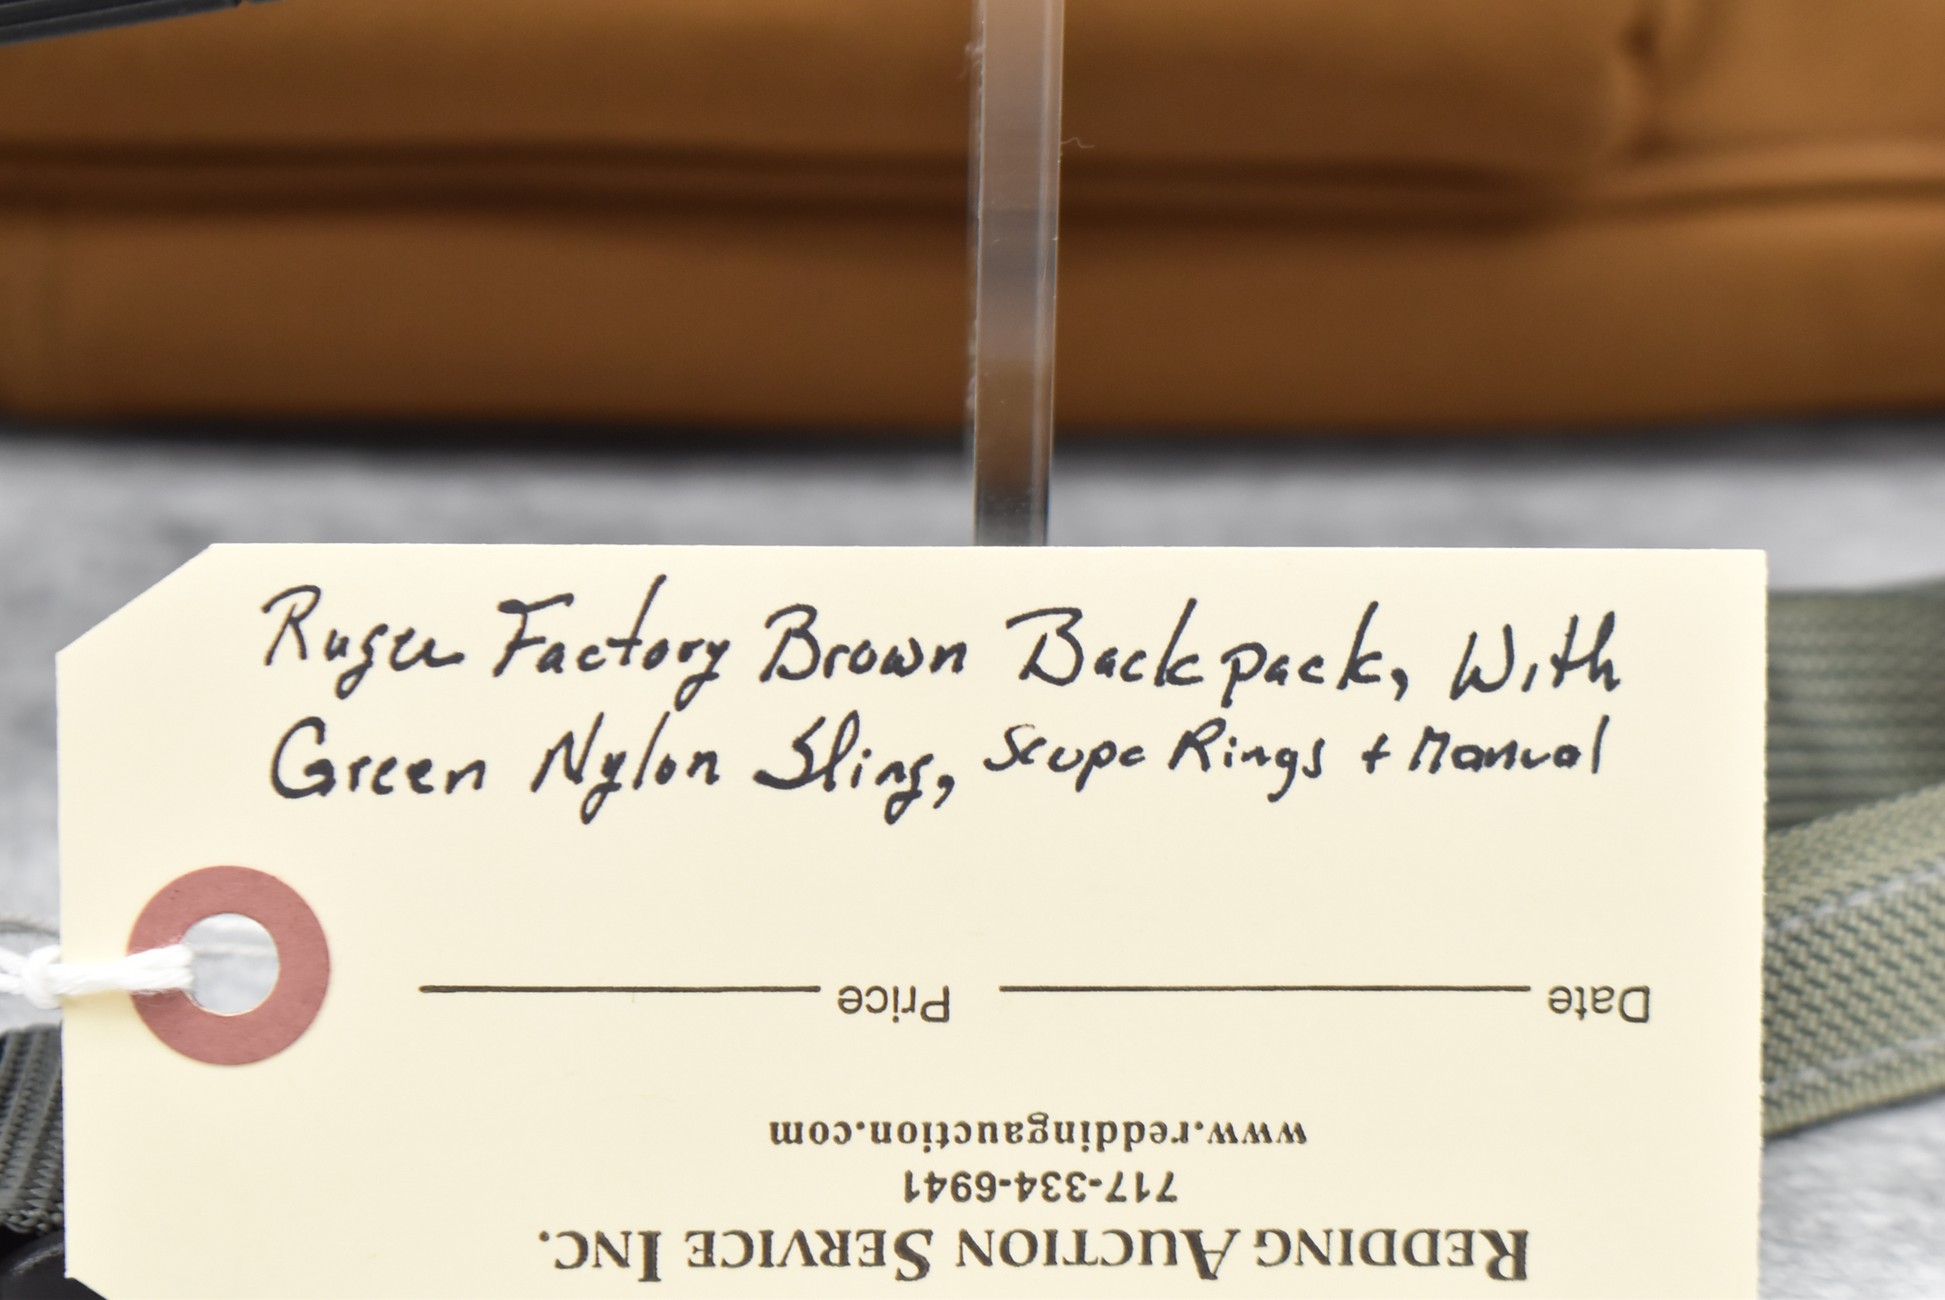 Ruger Factory Brown Backpack, With
Green Nylon Sling, Scope Rings + Manual
Price Date
www.reddingauction.com
717-334-6941
REDDING AUCTION SERVICE INC.